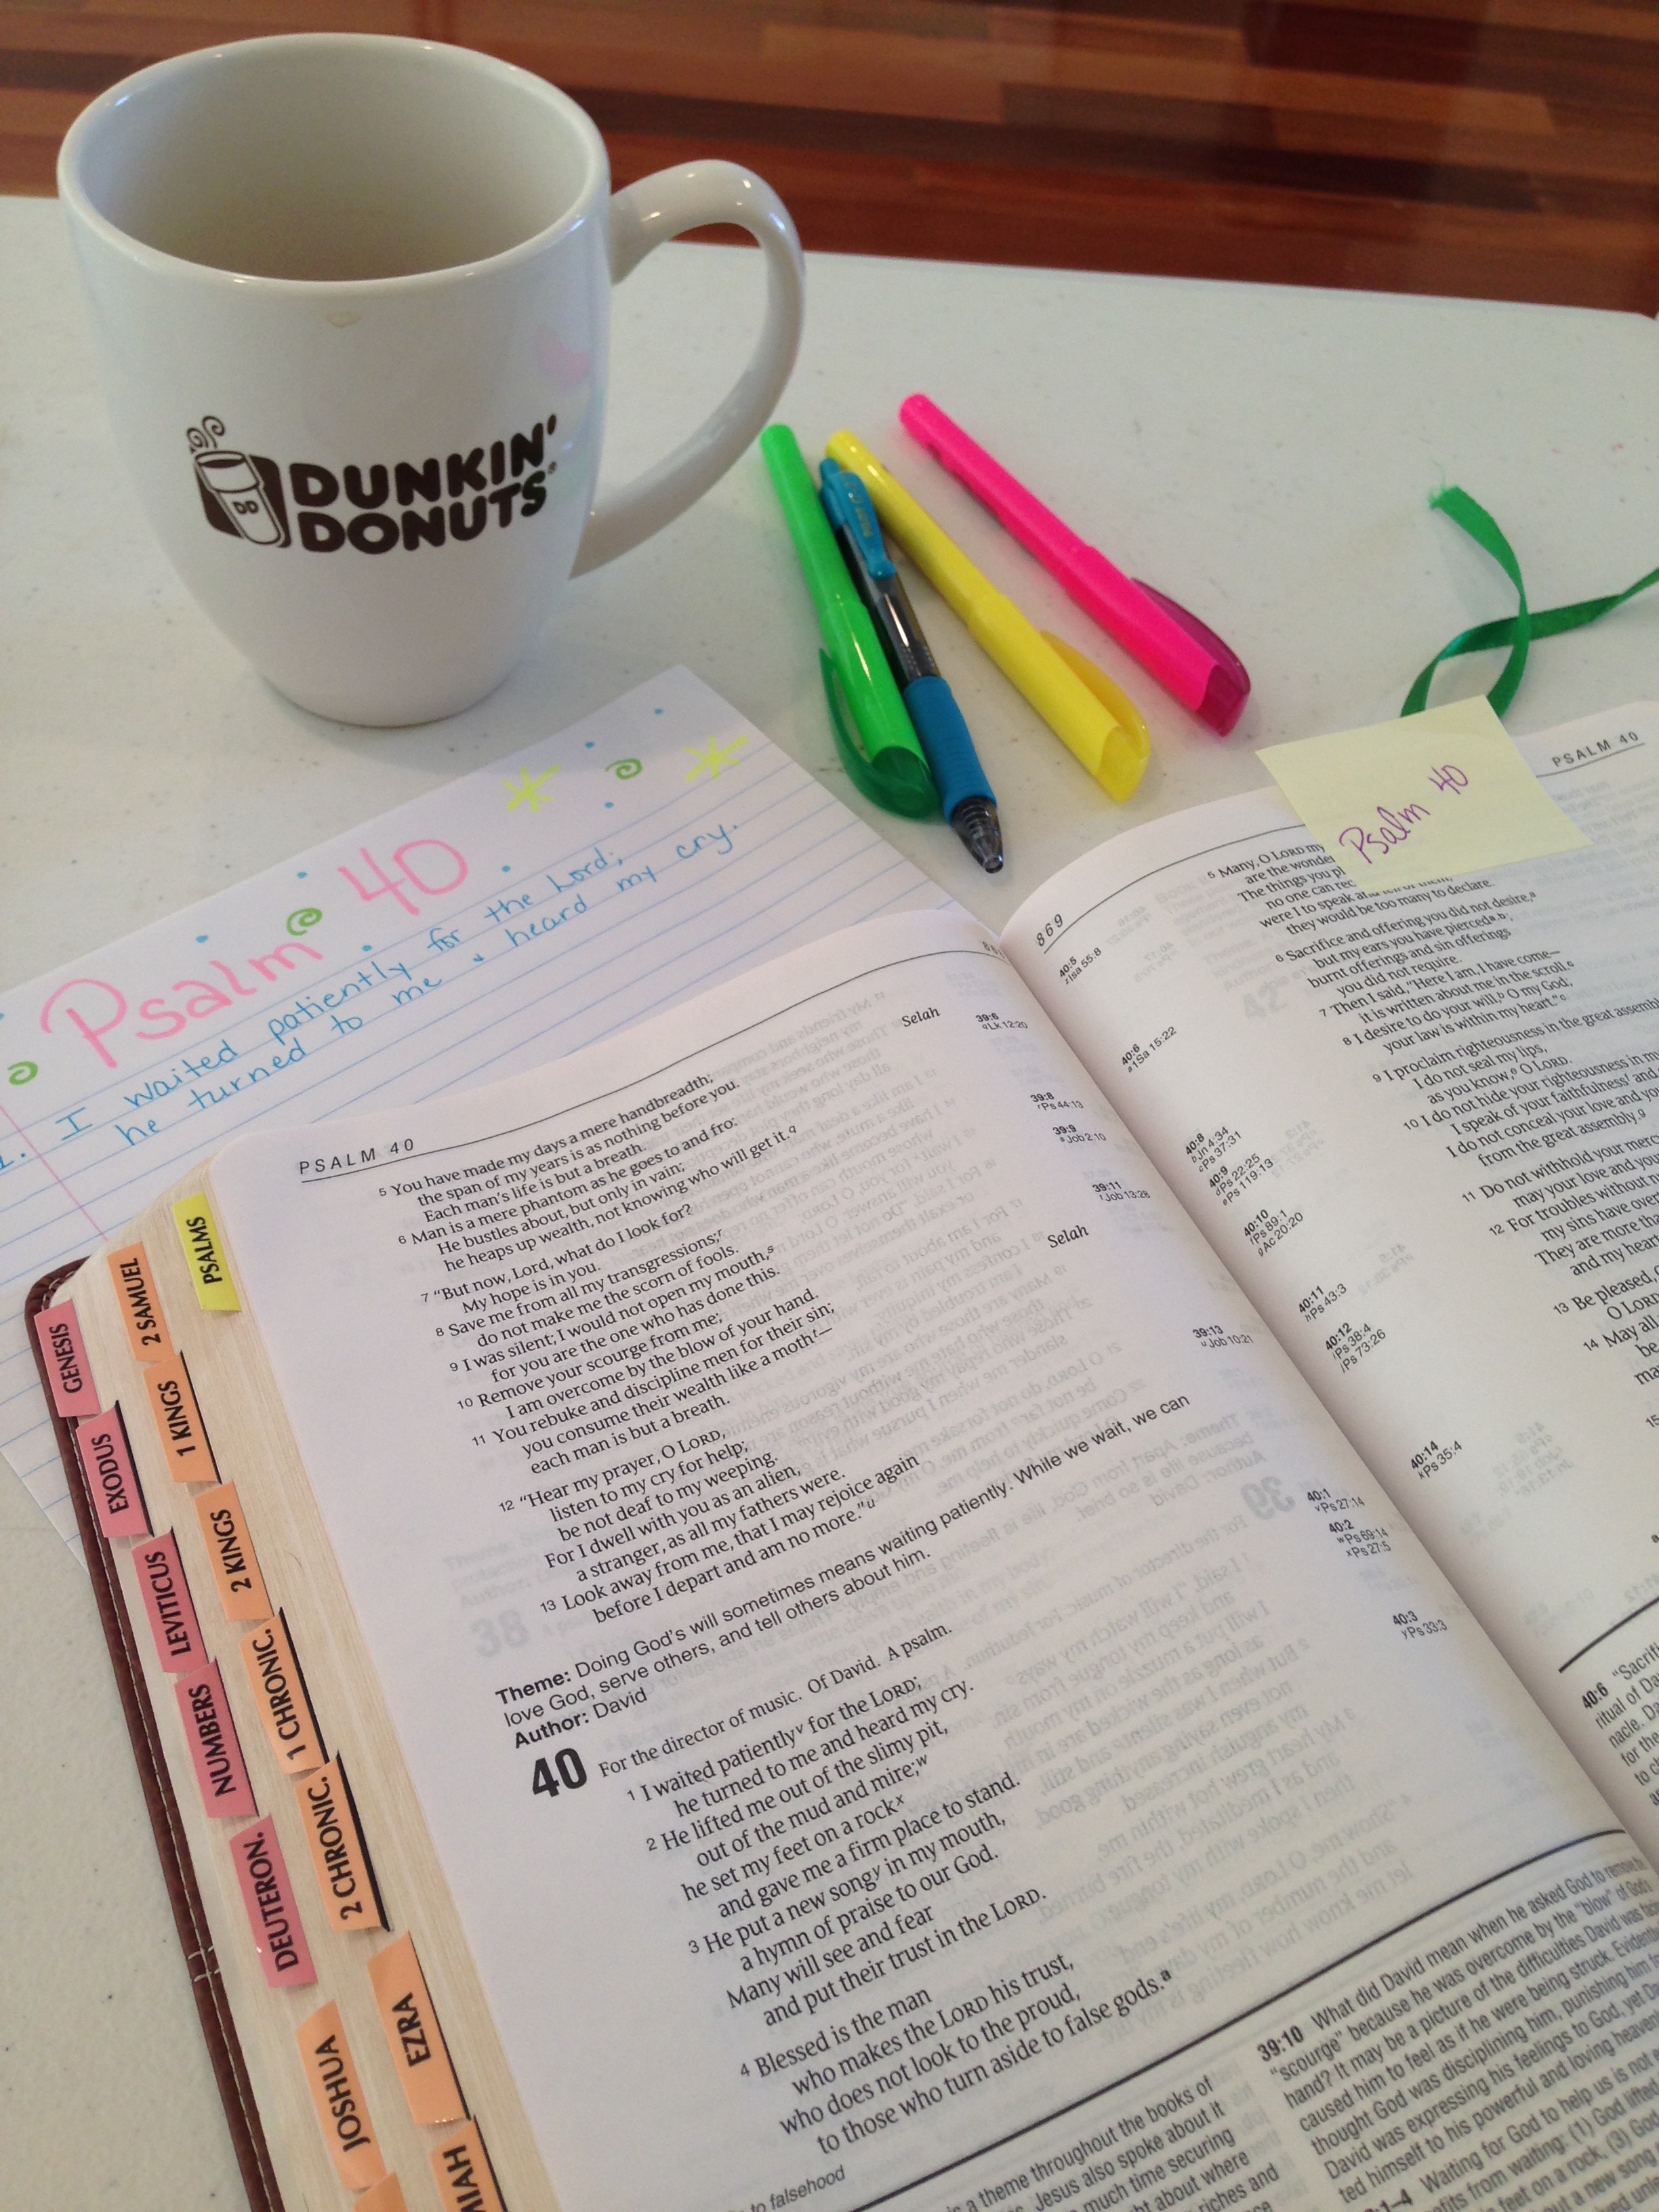 DUNKIN'
DONUTS
DD
Psalm 40
1. I waited patiently for the Lord;
he turned to me & heard my cry.
Psalm 40
PSALM 40
GENESIS
EXODUS
LEVITICUS
NUMBERS
DEUTERON.
JOSHUA
2 SAMUEL
1 KINGS
2 KINGS
1 CHRONIC.
2 CHRONIC.
EZRA
MIAH
PSALMS
PSALM 40
5 You have made my days a mere handbreadth;
the span of my years is as nothing before you.
Each man's life is but a breath. Selah
6 Man is a mere phantom as he goes to and fro:
He bustles about, but only in vain;
he heaps up wealth, not knowing who will get it.q
7 "But now, Lord, what do I look for?
My hope is in you.
8 Save me from all my transgressions;r
do not make me the scorn of fools.
9 I was silent; I would not open my mouth,s
for you are the one who has done this.
10 Remove your scourge from me;
I am overcome by the blow of your hand.
11 You rebuke and discipline men for their sin;
you consume their wealth like a moth t—
each man is but a breath. Selah
12 "Hear my prayer, O LORD,
listen to my cry for help;
be not deaf to my weeping.
For I dwell with you as an alien,
a stranger, as all my fathers were.
13 Look away from me, that I may rejoice again
before I depart and am no more."u
Theme: Doing God's will sometimes means waiting patiently. While we wait, we can
love God, serve others, and tell others about him.
Author: David
40 For the director of music. Of David. A psalm.
1 I waited patiently v for the LORD;
he turned to me and heard my cry.
2 He lifted me out of the slimy pit,
out of the mud and mire;w
he set my feet on a rock x
and gave me a firm place to stand.
3 He put a new song y in my mouth,
a hymn of praise to our God.
Many will see and fear
and put their trust in the LORD.
4 Blessed is the man
who makes the LORD his trust,
who does not look to the proud,
to those who turn aside to false gods.a
to falsehood
39:6
q Lk 12:20
39:8
r Ps 44:13
39:9
s Job 2:10
39:11
t Job 13:28
39:13
u Job 10:21
40:1
v Ps 27:14
40:2
w Ps 69:14
x Ps 27:5
40:3
y Ps 33:3
is a theme throughout the books of
Jesus also spoke about it
much time securing
about where
riches and
39:10 What did David mean when he asked God to remove his
"scourge" because he was overcome by the "blow" of God's
hand? It may be a picture of the difficulties David was
caused him to feel as if he were being struck.
thought God was disciplining him, punishing him
David was expressing his feelings to God, yet
ted himself to his powerful and loving
1–4 Waiting for God to help us is not
from waiting: (1) God lifted
feet on a rock, (3) God
a new song
869
5 Many, O LORD my
are the wonde
The things you pl
no one can rec
were I to speak and tell of them,
they would be too many to declare.
6 Sacrifice and offering you did not desire,a
but my ears you have pierced a, b;
burnt offerings and sin offerings
you did not require.
7 Then I said, "Here I am, I have come—
it is written about me in the scroll.c
8 I desire to do your will,b O my God;
your law is within my heart."c
9 I proclaim righteousness in the great assembl
I do not seal my lips,
as you know,e O LORD.
10 I do not hide your righteousness in m
I speak of your faithfulness f and
I do not conceal your love and yo
from the great assembly.g
11 Do not withhold your merc
may your love and you
12 For troubles without n
my sins have over
They are more tha
and my heart
13 Be pleased,
O LORD
14 May all
be
ma
15
40:5
z Isa 55:8
40:6
a 1Sa 15:22
40:8
b Jn 4:34
c Ps 37:31
40:9
d Ps 22:25
e Ps 119:13
40:10
f Ps 89:1
g Ac 20:20
40:11
h Ps 43:3
40:12
i Ps 38:4
j Ps 73:26
40:14
k Ps 35:4
40:6 "Sacrifi
ritual of Da
nacle. Da
for the
to